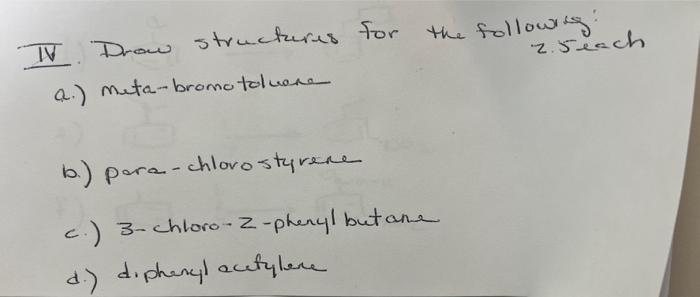 IV. Draw structures for the following:
2.5 each
a.) meta-bromotoluene
b.) para-chlorostyrene
c.) 3-chloro-2-phenylbutane
d.) diphenyl acetylene